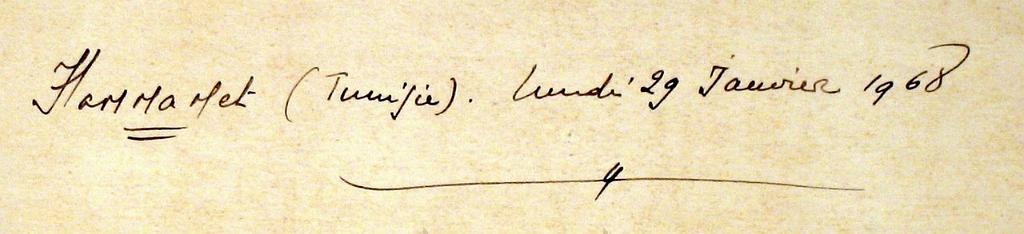 Hammamet (Tunisie). Lundi 29 Janvier 1968